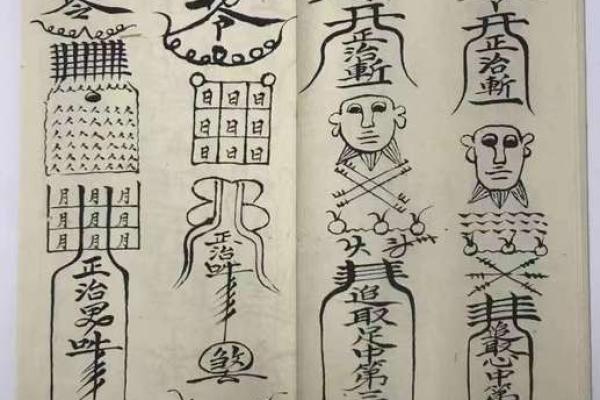 正治斬
追取心中第
正治斬
追取足中第三
令
日日日
日日日
日日日
正治吽
煞
令
月月月
月月月
月月月
正治男吽